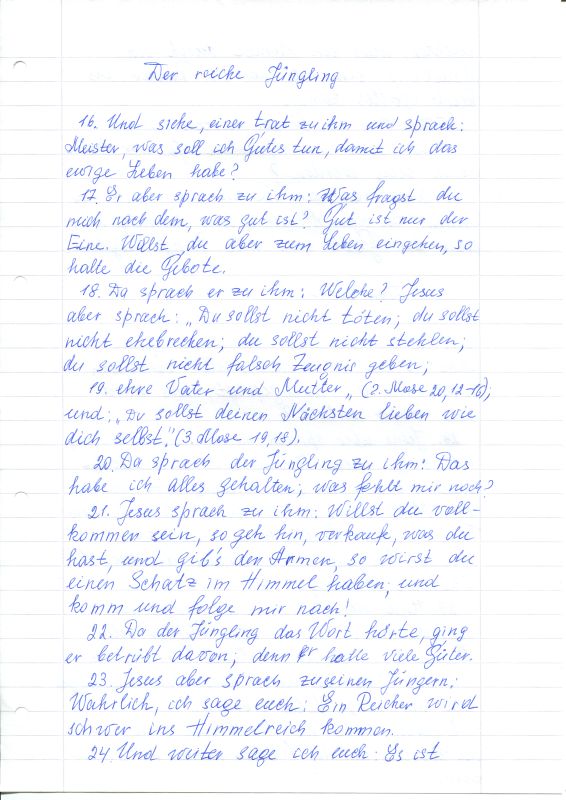 Der reiche Jüngling
16. Und siehe, einer trat zu ihm und sprach:
Meister, was soll ich Gutes tun, damit ich das
ewige Leben habe?
17. Er aber sprach zu ihm: Was fragst du
mich nach dem, was gut ist? Gut ist nur der
Eine. Willst du aber zum Leben eingehen, so
halte die Gebote.
18. Da sprach er zu ihm: Welche? Jesus
aber sprach: „Du sollst nicht töten; du sollst
nicht ehebrechen; du sollst nicht stehlen;
du sollst nicht falsch Zeugnis geben;
19. ehre Vater und Mutter„ (2. Mose 20,12-16);
und: „Du sollst deinen Nächsten lieben wie
dich selbst." (3. Mose 19,18).
20. Da sprach der Jüngling zu ihm: Das
habe ich alles gehalten; was fehlt mir noch?
21. Jesus sprach zu ihm: Willst du voll-
kommen sein, so geh hin, verkaufe, was du
hast, und gib's den Armen, so wirst du
einen Schatz im Himmel haben; und
komm und folge mir nach!
22. Da der Jüngling das Wort hörte, ging
er betrübt davon; denn er hatte viele Güter.
23. Jesus aber sprach zu seinen Jüngern:
Wahrlich, ich sage euch: Ein Reicher wird
schwer ins Himmelreich kommen.
24. Und weiter sage ich euch: Es ist